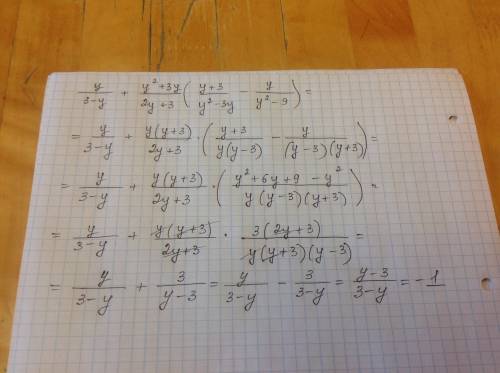 y/(3-y) + (y²+3y)/(2y+3) ( (y+3)/(y²-3y) - y/(y²-9) ) =
= y/(3-y) + y(y+3)/(2y+3) · ( (y+3)/(y(y-3)) - y/((y-3)(y+3)) ) =
= y/(3-y) + y(y+3)/(2y+3) · ( (y²+6y+9-y²)/(y(y-3)(y+3)) ) =
= y/(3-y) + y(y+3)/(2y+3) · 3(2y+3)/(y(y+3)(y-3)) =
= y/(3-y) + 3/(y-3) = y/(3-y) - 3/(3-y) = (y-3)/(3-y) = -1